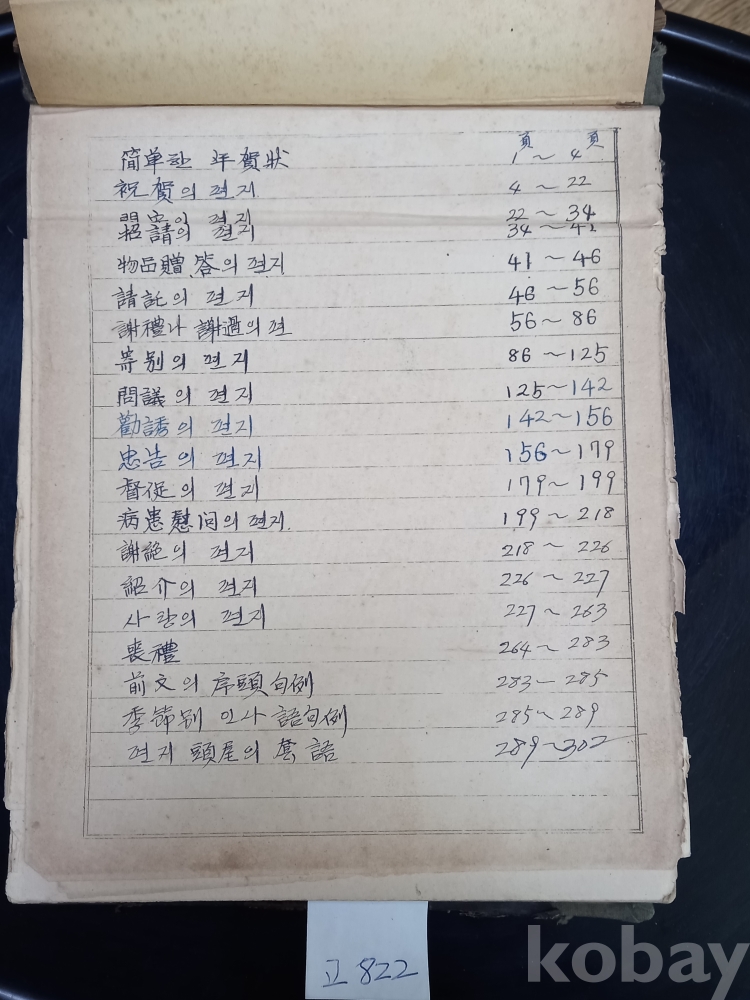 頁 頁
簡单한 年賀狀 1 ~ 4
祝賀의 편지 4 ~ 22
편지 22 ~ 34
招請의 편지 34 ~ 41
物品贈答의 편지 41 ~ 46
請託의 편지 46 ~ 56
謝禮나 謝過의 편 56 ~ 86
别의 편지 86 ~ 125
問議의 편지 125 ~ 142
勸誘의 편지 142 ~ 156
忠告의 편지 156 ~ 179
督促의 편지 179 ~ 199
病患慰问의 편지. 199 ~ 218
謝絶의 편지 218 ~ 226
紹介의 편지 226 ~ 227
사랑의 편지 227 ~ 263
喪禮 264 ~ 283
前文의 序頭句例 283 ~ 285
季節别 인사 語句例 285 ~ 289
편지 頭尾의 套語 289 ~ 302
고 822
kobay